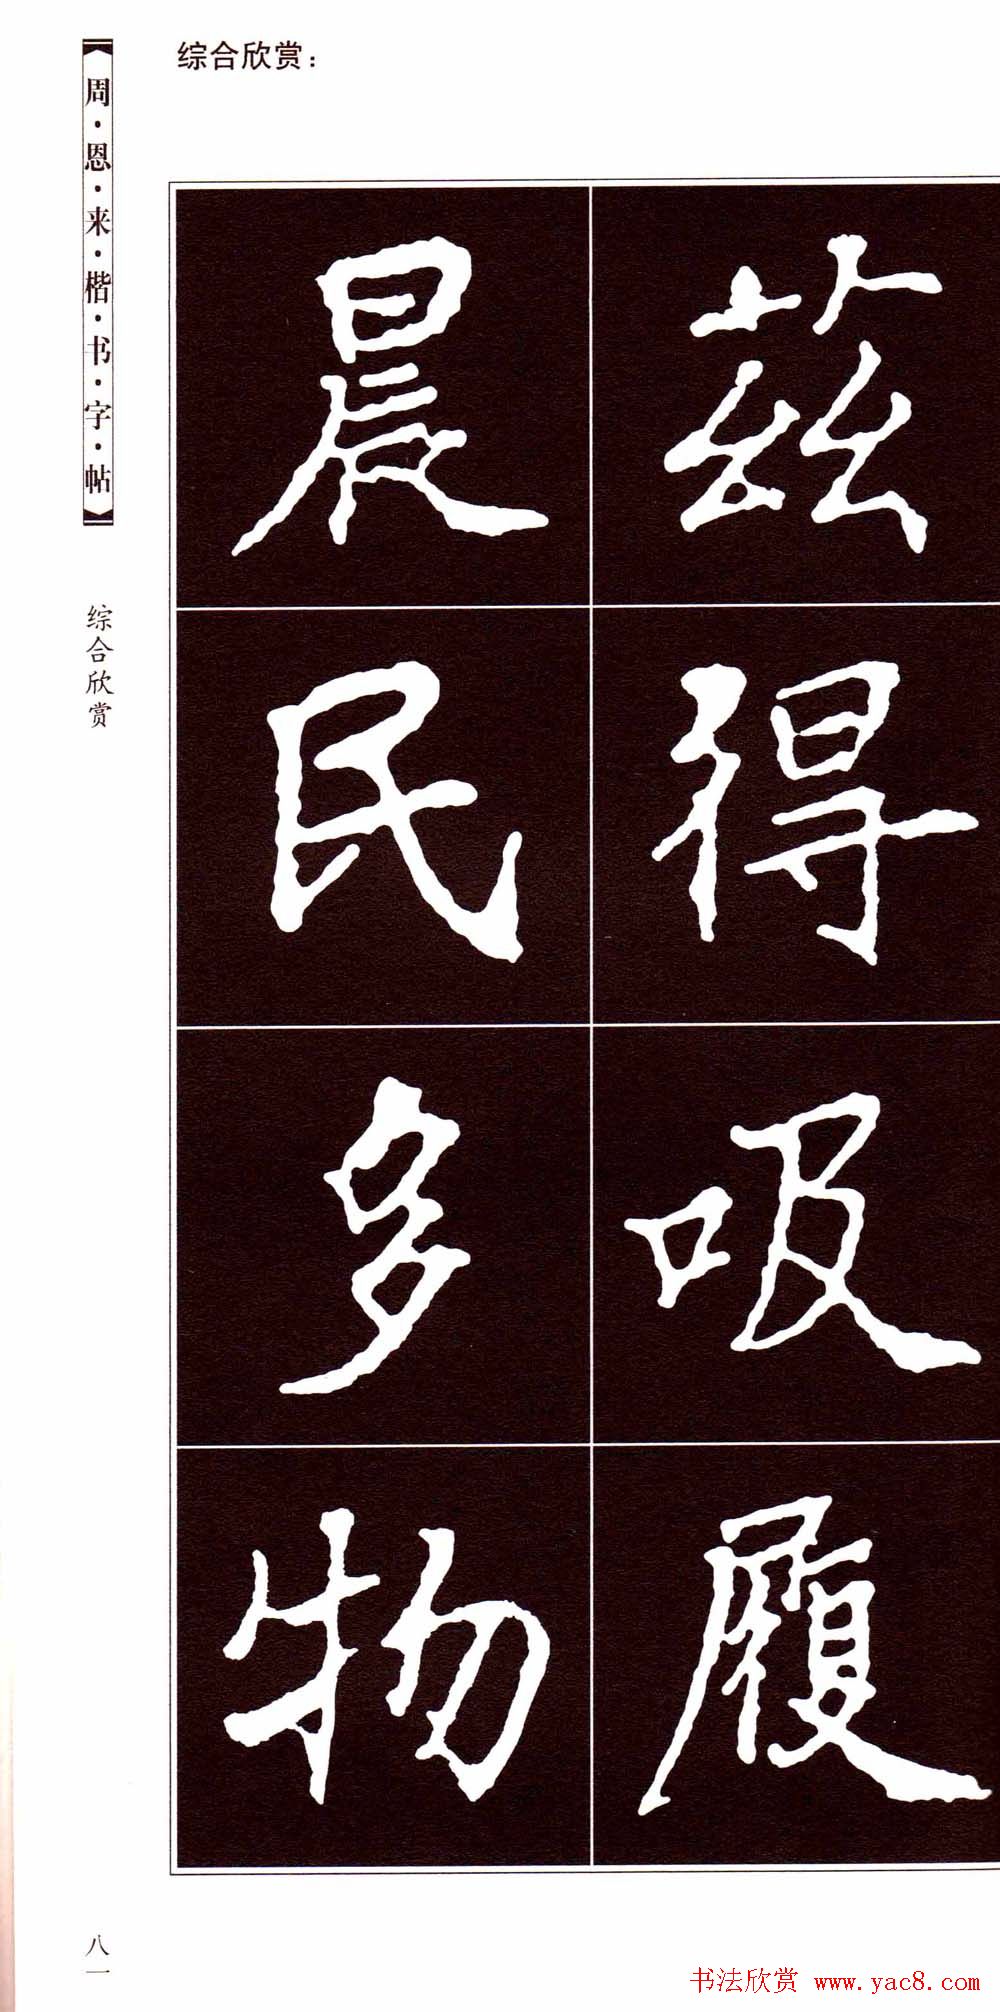 综合欣赏：
周·恩·来·楷·书·字·帖
综合欣赏
兹得吸履
晨民多物
八一
书法欣赏 www.yac8.com